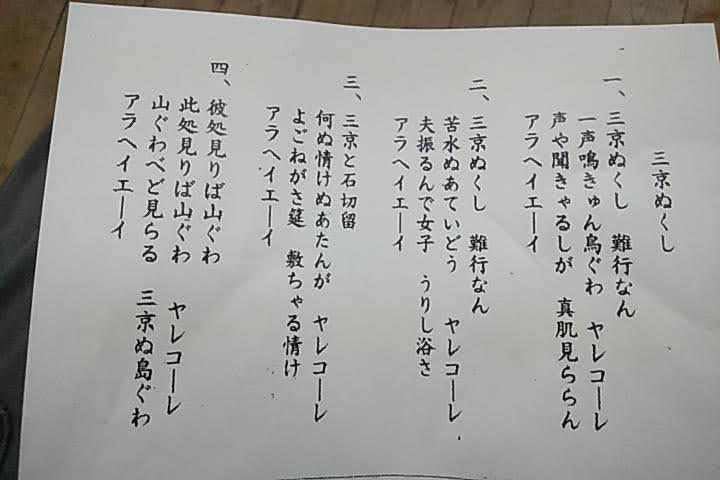 三京ぬくし
一、三京ぬくし　難行なん
一声鳴きゅん鳥ぐわ　ヤレコーレ
声や聞きゃるしが　真肌見ららん
アラヘイエーイ
二、三京ぬくし　難行なん
苦水ぬあていどう　ヤレコーレ
夫振るんで女子　うりし浴さ
アラヘイエーイ
三、三京と石切留
何ぬ情けぬあたんが　ヤレコーレ
よごねがさ筵　敷ちゃる情け
アラヘイエーイ
四、彼処見りば山ぐわ
此処見りば山ぐわ　ヤレコーレ
山ぐわべど見らる　三京ぬ島ぐわ
アラヘイエーイ